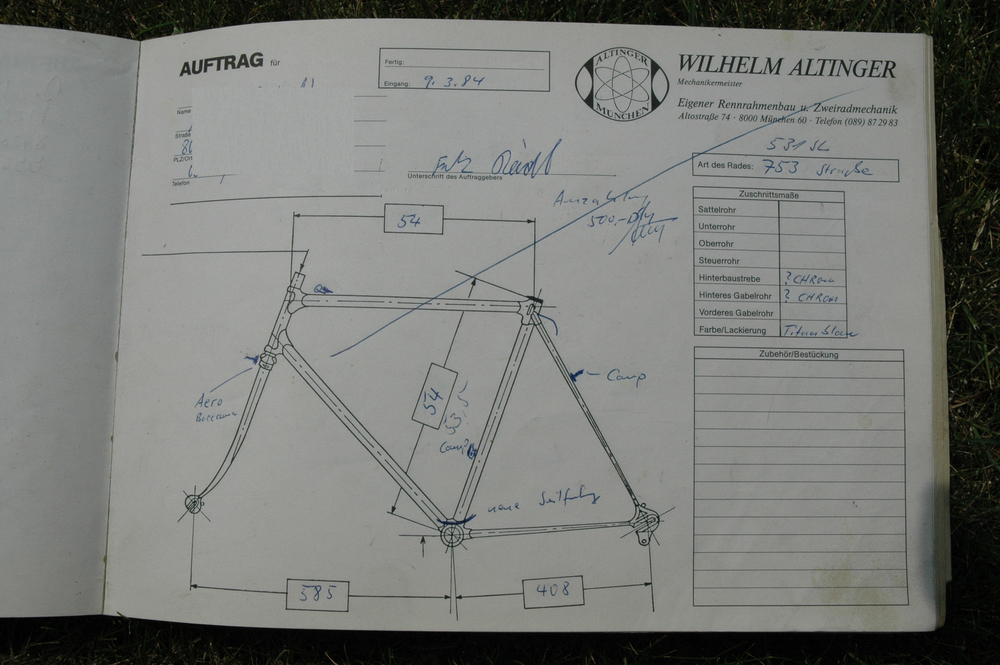 AUFTRAG für
Fertig:
Eingang: 9.3.84
ALTINGER
MÜNCHEN
WILHELM ALTINGER
Mechanikermeister
Eigener Rennrahmenbau u. Zweiradmechanik
Altostraße 74 · 8000 München 60 · Telefon (089) 87 29 83
Name
Straße
PLZ/Ort
Telefon
Unterschrift des Auftraggebers
531 SL
Art des Rades: 753 Straße
Anzahlung
500,-
Zuschnittsmaße
Sattelrohr
Unterrohr
Oberrohr
Steuerrohr
Hinterbaustrebe ? CHROM
Hinteres Gabelrohr ? CHROM
Vorderes Gabelrohr
Farbe/Lackierung Titanblau
Zubehör/Bestückung
54
54
53,5
Camp
Camp
Aero
neue Seilführg
585
408